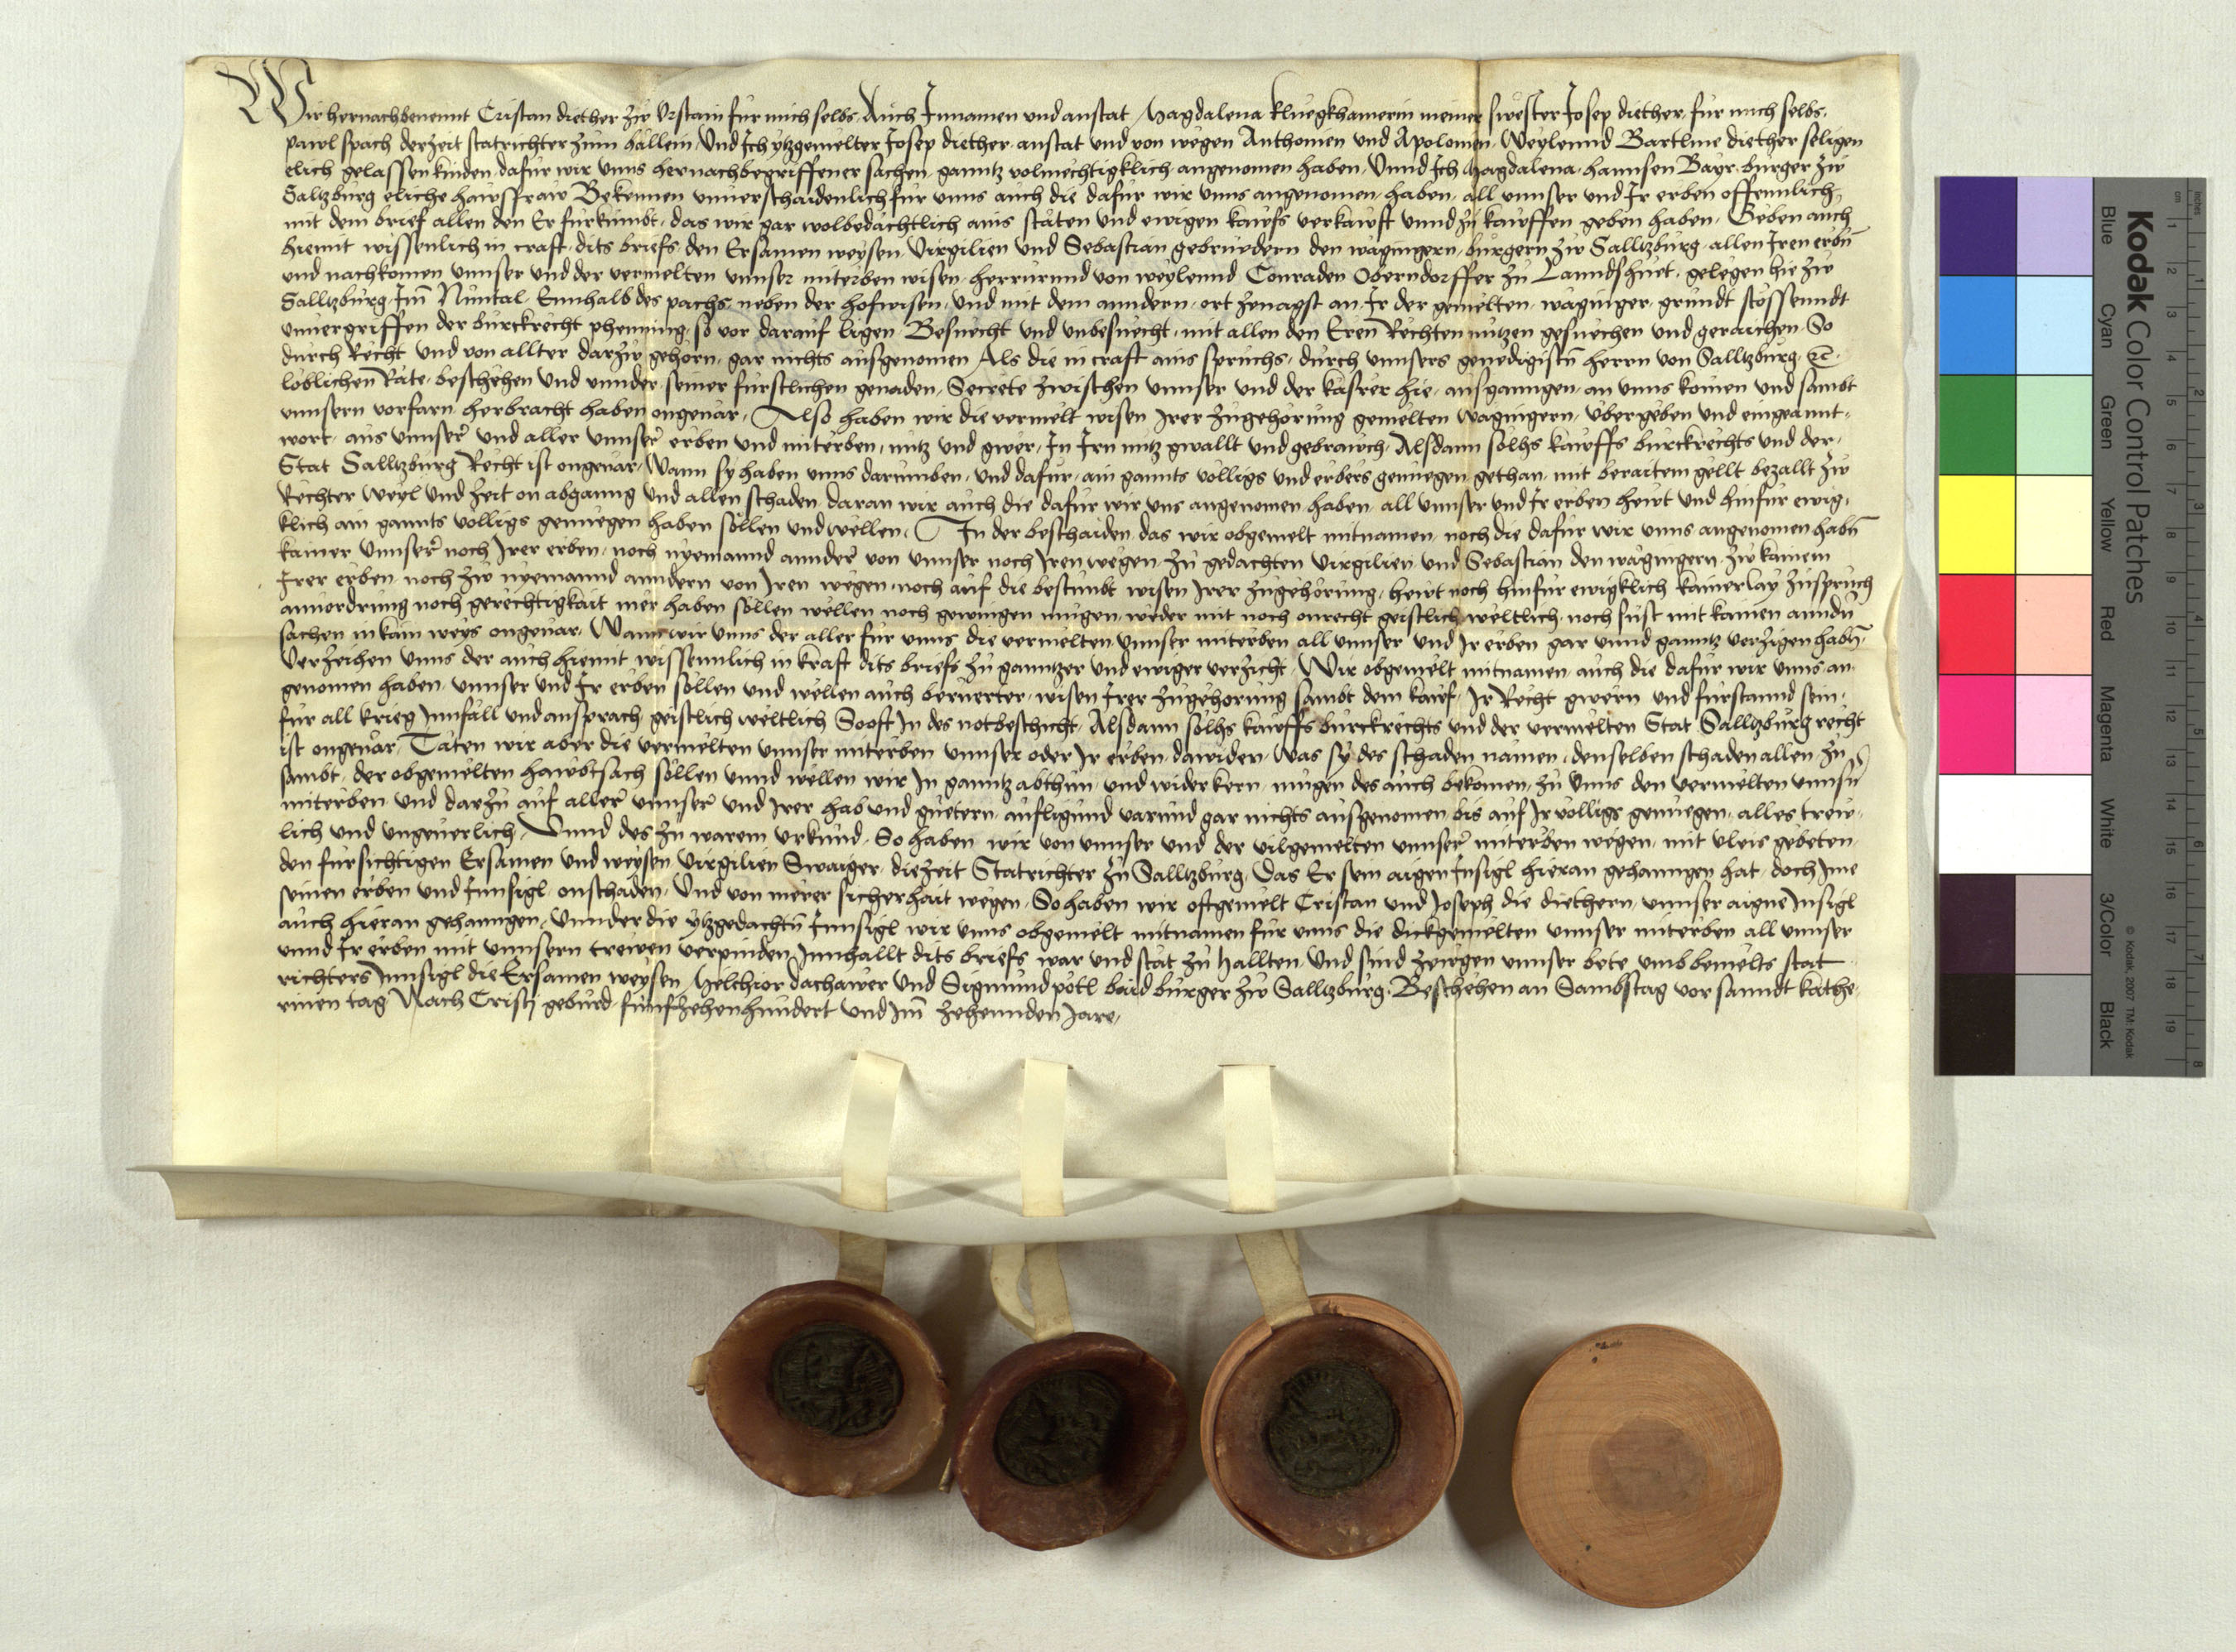 Wir hernachbenennt Cristan diether zw Vrstain fur mich selbs Auch Innamen und anstat Magdalena kluegkhamerin meiner swester Josep diether fur mich selbs
pawl spach derzeit statrichter zum hallein Und Ich ytzgemelter Josep diether anstat und von wegen Anthonien und Apolonien Weylennd Bartlme diether seligen
elich gelassen kinden dafur wir unns hernachbegriffener sachen ganntz volmechtigklich angenomen haben Unnd Ich Magdalena hannsen Bayr burger zw
Saltzburg eliche hawsfraw Bekennen unnerschaidenlich fur unns auch die dafur wir unns angenomen haben all unnser und Ir erben offennlich
mit dem brief allen den Er furkumbt das wir gar wolbedachtlich ains stäten und ewigen kawfs verkawft unnd zu kawffen geben haben Geben auch
hiemit wissenlich in craft dits briefs den Ersamen weysen Virgilien und Sebastian gebruedern den wagingern burgern zw Salltzburg allen Iren erbn
und nachkomen unnser und der vermelten unnser miterben wisen herrurund von weylennd Conraden Oberndorffer zu Lanndshuet gelegen hie zw
Salltzburg Im Nuntal Ennhalb des pachs neben der hofwisen und mit dem anndern ort zenagst an Ir der gemelten waginger grundt stossenndt
unuergriffen der burckrecht phenning so vor darauf ligen Besuecht und unbesuecht mit allen den Eren Rechten nutzen gesuechen und geraichen So
durch Recht und von allter darzw gehorn gar nichts ausgenomen Als die in craft ains spruchs durch unnsers genedigistn herrn von Salltzburg etc
loblichen Räte beschehen und unnder seiner furstlichen genaden Secrete zwischen unnser und der kasrer hie ausganngen an unns komen und sambt
unnsern vorfarn herbracht haben ongeuär Also haben wir die vermelt wisen Irer zugehorung gemelten wagingern ubergeben und eingeannt
wort aus unnser und aller unnser erben und miterben nutz und gwer In Irn nutz gwallt und gebrawch Alsdann solhs kawffs burckrechts und der
Stat Salltzburg Recht ist ongeuär Wann sy haben unns darumben und dafur ain gannts volligs und erbers genuegen gethan mit beraitem gellt bezallt zw
Rechter weyl und zeit on abganng und allen schaden daran wir auch die dafur wir uns angenomen haben all unnser und Ir erben hewt und hinfur ewig
klich ain gannts volligs genuegen haben sollen und wellen In der beschaiden das wir obgemelt mitnamen noch die dafur wir unns angenomen habn
kainer unnser noch Irer erben noch nyemannd annder von unnser noch Iren wegen zu gedachten Virgilien und Sebastian den wagingern zw kainem
Irer erben noch zw nyemannd anndern von Iren wegen noch auf die bestimbt wisen Irer zugehorung hewt noch hinfur ewigklich kainerlay zuspruch
annordrung noch gerechtigkait mer haben sollen wellen noch gewingen mugen weder mit noch onrecht geistlich weltlich noch sust mit kainen anndn
sachen in kain weys ongeuar Wann wir unns der aller fur unns die vermelten unnser miterben all unnser und Ir erben gar unnd ganntz verzigen habn
Verzeihen unns der auch hiemit wissennlich in kraft dits briefs zu ganntzer und ewiger verzicht Wir obgemelt mitnamen auch die dafur wir unns an
genomen haben unnser und Ir erben sollen und wellen auch beruerter wisen Irer zugehorung sambt dem kawf Ir Recht gwern und furstannd sein
fur all krieg Innfäll und ansprach geistlich weltlich Sooft In des notbeschicht Alsdann solhs kawffs burckrechts und der vermelten Stat Salltzburg recht
ist ongeuär Täten wir aber die vermelten unnser miterben unnser oder Ir erben dawider Was sy des schaden namen denselben schaden allen zu
sambt der obgemelten hawbtsach sollen unnd wellen wir In ganntz abthun und widerkern mugen des auch bekomen zu unns den vermelten unnsn
miterben und darzu auf aller unnser und Irer hab und guetern aufligund varund gar nichts ausgenomen bis auf Ir volligs genuegen alles trew
lich und ungeuerlich Unnd des zu warem urkund So haben wir von unnser und der vilgemelten unnser miterben wegen mit vleis gebeten
den fursichtigen Ersamen und weysen Virgilien Swaiger diezeit Statrichter zu Salltzburg Das Er sein aigen Insigl hieran gehanngen hat doch Ime
seinen erben und Innsigl onschaden Und von merer sicherhait wegen So haben wir oftgemelt Cristan und Joseph die diethern unnser aigne Insigl
auch hieran gehanngen Unnder die ytzgedachtn Innsigl wir unns obgemelt mitnamen fur unns die dickgemelten unnser miterben all unnser
unnd Ir erben mit unnsern trewen verpinden Innhallt dits briefs war und stät zu hallten Und sind zewgen unnser bete umb bemelts stat
richters Innsigl die Ersamen weysen Melchior dachawer und Sigmund pötl baid burger zw Salltzburg Beschehen an Sambstag vor sanndt kathe
rinen tag Nach Cristj geburd funfzehenhundert und Im zehennden Jare
Kodak Color Control Patches
Blue Cyan Green Yellow Red Magenta White 3/Color Black
© Kodak, 2007 TM: Kodak
inches 1 2 3 4 5 6 7 8
cm 1 2 3 4 5 6 7 8 9 10 11 12 13 14 15 16 17 18 19